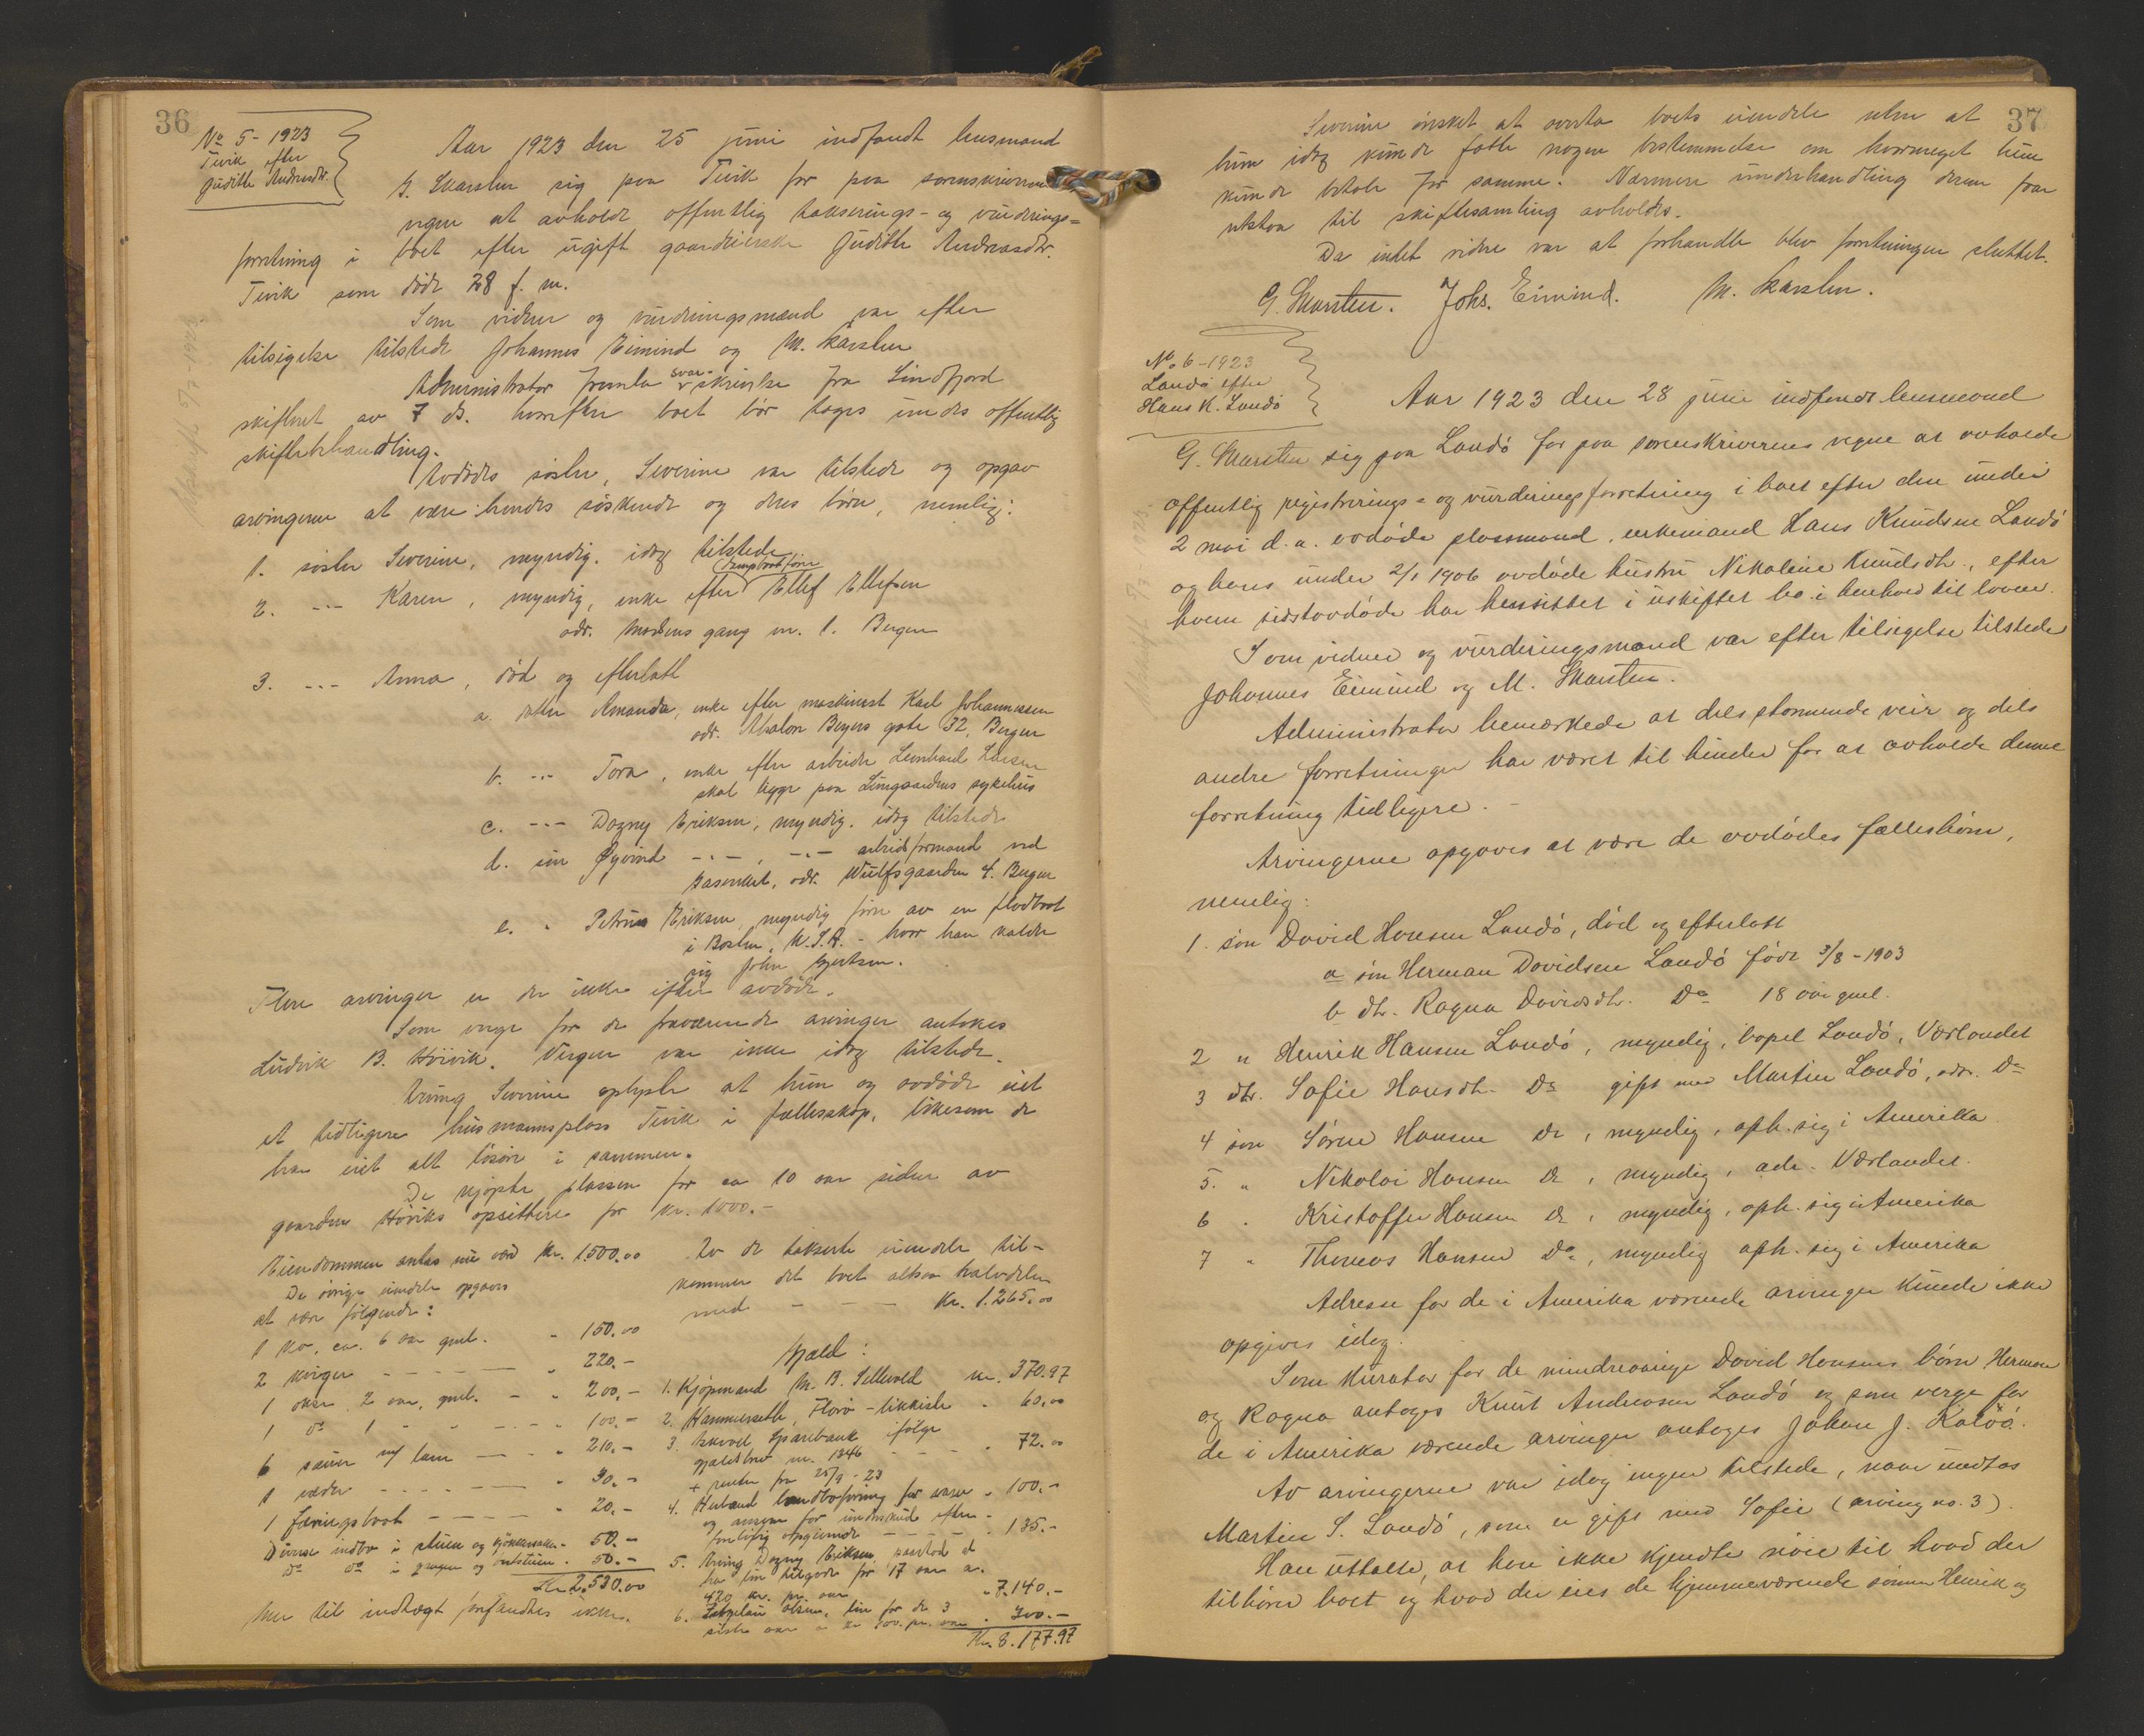 36
No 5-1923
Tivik efter
Judithe Andreasdtr.
Aar 1923 den 25 juni indfandt lensmand
G. Skarsten sig paa Tivik for paa sorenskriverens
vegne at avholde offentlig takserings- og vurderings=
forretning i boet efter ugift gaardeierske Judithe Andreasdtr.
Tivik som døde 28 f. m.
Som vidner og vurderingsmænd var efter
tilsigelse tilstede Johannes Eimind og M. Karsten
Administrator fremla svar-skrivelse fra Sundfjord
skifteret av 7 ds. hvorefter boet bør tages under offentlig
skiftebehandling.
Avdødes søster, Severine var tilstede og opgav
arvingerne at være hendes søskende og deres børn, nemlig:
1. søster Severine, myndig. idag tilstede
2. -.- Karen, myndig, enke efter Ellef Ellefsen
adr. Modsens gang nr. 1. Bergen
3. -.- Anna, død og efterlatt
a. datter Amanda, enke efter maskinist Karl Johannessen
adr. Absalon Beyers gate 32, Bergen
b. -.- Tora, enke efter arbeider Leonhard Larsen
skal ligge paa Lungaardens sykehus
c. -.- Dagny Eriksen, myndig. idag tilstede
d. søn Øyvind -.-, -.- arbeidsformand ved
Gasverket, adr. Wulfsgaarden 4. Bergen
e. " Petrus Eriksen, myndig fører av en flodbaat
i Boston, U.S.A. - hvor han kalder
sig John
Flere arvinger er der ikke efter avdøde.
Som verge for de fraværende arvinger antokes
Ludvik B. Høivik. Vergen var ikke idag tilstede.
Arving Severine oplyste at hun og avdøde eiet
et tidligere husmannsplass Tivik i fællesskap, likesom de
har eiet alt løsøre i sammen.
De kjøpte plassen for ca 10 aar siden av
gaarden Høiviks opsittere for kr. 1000.-
Eiendommen antas nu værd kr. 1.500.00
De øvrige eiendele opgaves
at være følgende:
1 ko, ca. 6 aar gml. " 150.00
2 kviger - - - " 220.-
1 okse 2 aar, gml. - " 200.-
1 do 1 " " - - " 100.-
6 sauer m/ lam - - " 210.-
1 væder - - - - " 30.-
1 færingsbaat - - - " 20.-
Diverse indbo i stuen og kjøkkensaker - 50.-
do do i gangen og - 50.-
Kr 2.530.00
Mer til indtægt forefandtes ikke.
Av de takserte eiendele til-
kommer det boet altsaa halvdelen
med - - - Kr. 1.265.00
Gjæld:
1. Kjøpmand M. B. Sellevold kr. 370.97
2. Hammerseth, Florø - likkiste " 60.00
3. Askvoll Sparebank ifølge
gjældsbrev nr. 1346 - - - " 72.00
+ renter fra 25/9 - 23
4. Herland landhandleri for varer " 100.-
og ansvar for underskud efter
foreløpig opgjørende - - - " 135.-
5. Arving Dagny Eriksen paastod at
ha løn tilgode for 17 aar a.
420 kr. pr. aar " 7.140.-
6. Olsen, løn for de 3
siste aar a kr 100. pr. aar " 300.-
Kr. 8.177.97
37
Severine ønsket at overta boets eiendele uten at
hun idag kunde fatte nogen bestemmelse om hvormeget hun
kunde betale for samme. Nærmere underhandling derom faar
utstaa til skiftesamling avholdes.
Da intet videre var at forhandle blev forretningen sluttet.
G. Skarsten. Johs. Eimind. M. Karsten.
No 6-1923
Landø efter
Hans K. Landø
Aar 1923 den 28 juni indfandt lensmand
G. Skarsten sig paa Landø for paa sorenskriverens vegne at avholde
offentlig registrerings= og vurderingsforretning i boet efter den under
2 mai d.a. avdøde plassmand, enkemand Hans Knudsen Landø
og hans under 2/1 1906 avdøde hustru Nikoline Knudsdtr., efter
hvem sidstavdøde har hensittet i uskiftet bo i henhold til loven.
Som vidner og vurderingsmænd var efter tilsigelse tilstede
Johannes Eimind og M. Skarsten.
Administrator bemærkede at dels stormende veir og dels
andre forretninger har været til hinder for at avholde denne
forretning tidligere. -
Arvingerne opgaves at være de avdødes fællesbørn,
nemlig:
1. søn David Hansen Landø, død og efterlatt
a søn Herman Davidsen Landø født 3/8-1903
b dtr. Ragna Davidsdtr. Do 18 aar gml.
2 " Henrik Hansen Landø, myndig, bopel Landø, Værlandet
3 dtr. Sofie Hansdtr. Do gift med Martin Landø, adr. Do
4 søn Søren Hansen Do, myndig, oph. sig i Amerika
5. " Nikolai Hansen Do, myndig, adr. Værlandet.
6 " Kristoffer Hansen Do, myndig, oph. sig i Amerika
7 " Thomas Hansen Do, myndig oph. sig i Amerika
Adresse for de i Amerika værende arvinger kunde ikke
opgives idag.
Som kurator for de mindreaarige David Hansens børn Herman
og Ragna antages Knut Andreasen Landø og som verge for
de i Amerika værende arvinger antages Johan J. Kalvø.
Av arvingerne var idag ingen tilstede, naar undtas
Martin S. Landø, som er gift med Sofie (arving no. 3).
Han uttalte, at han ikke kjendte nøie til hvad der
tilhører boet og hvad der eies de hjemmeværende sønner Henrik og